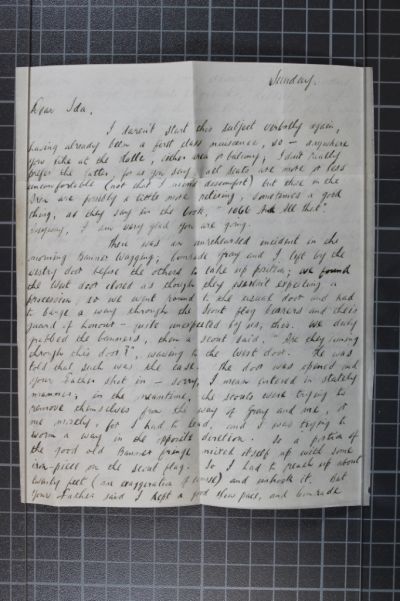 Sunday.
Dear Ida,
I daren't start this subject verbally again,
having already been a first class nuisance, so - anywhere
you like at the Halle, either area or balcony; I don't really
prefer the latter, for as you say, all seats are more or less
uncomfortable (not that I mind discomfort) but those in the
area are possibly a little more retiring, sometimes a good
thing, as they say in the book, "1066 And All that".
Anyway, I am very glad you are going.
There was an unrehearsed incident in the
morning Banner Wagging; Comrade Gray and I left by the
vestry door before the others to take up position; we found
the West door closed as though they weren't expecting a
procession, so we went round to the usual door and had
to barge a way through the scout flag bearers and their
guard of honour - quite unexpected by us, this. We duly
grabbed the banners, then a scout said, "Are they coming
through this door?", waving to the West door. He was
told that such was the case, the door was opened and
your Father shot in - sorry, I mean entered in stately
manner; in the meantime, the scouts were trying to
remove themselves from the way of Gray and me, or
me mostly, for I had to lead, and I was trying to
worm a way in the opposite direction. So a portion of
the good old Banner fringe mixed itself up with some
iron-piece on the scout flag. So I had to reach up about
twenty feet (an exaggeration of course) and unhook it. But
your Father said I kept a good slow pace, and Comrade